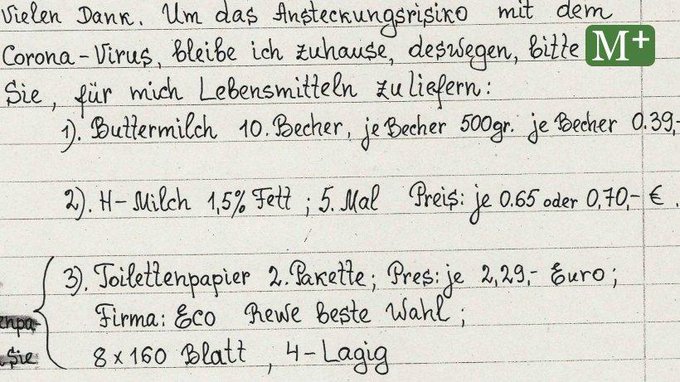 Vielen Dank. Um das Ansteckungsrisiko mit dem
Corona-Virus, bleibe ich zuhause, deswegen, bitte
M+
Sie, für mich Lebensmitteln zu liefern:
1). Buttermilch 10. Becher, je Becher 500gr. je Becher 0.39,-
2). H-Milch 1,5% Fett ; 5. Mal Preis: je 0.65 oder 0,70,- € .
3). Toilettenpapier 2. Pakette; Pres: je 2,29,- Euro ;
Firma: Eco Rewe beste Wahl ;
enpa-
8 x 160 Blatt , 4-Lagig
Sie